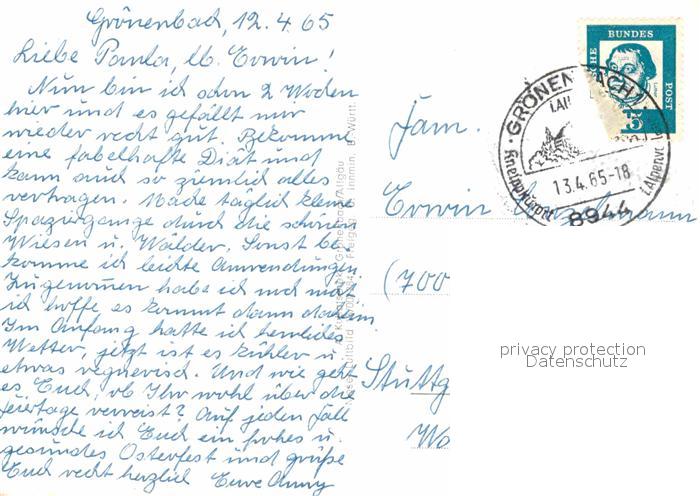 Grönenbach, 12.4.65
Liebe Paula, lb. Erwin!
Nun bin ich schon 2 Wochen
hier und es gefällt mir
wieder recht gut. Bekomme
eine fabelhafte Diät und
kann auch so ziemlich alles
vertragen. Mache täglich kleine
Spaziergänge durch die schönen
Wiesen u. Wälder. Sonst be-
komme ich leichte Anwendungen.
Zugenommen habe ich noch nicht
ich hoffe es kommt dann daheim
Im Anfang hatte ich herrliches
Wetter, jetzt ist es kühler u.
etwas regnerisch. Und wie geht
es Euch, ob Ihr wohl über die
Feiertage verreist? Auf jeden Fall
wünsche ich Euch ein frohes u.
gesundes Osterfest und grüße
Euch recht herzlich Eure Anny
Fam.
Erwin
(700
Stuttg
Wo
BUNDES
POST
GRÖNENBACH
Kneippkurort
13.4.65-18
8944
privacy protection
Datenschutz